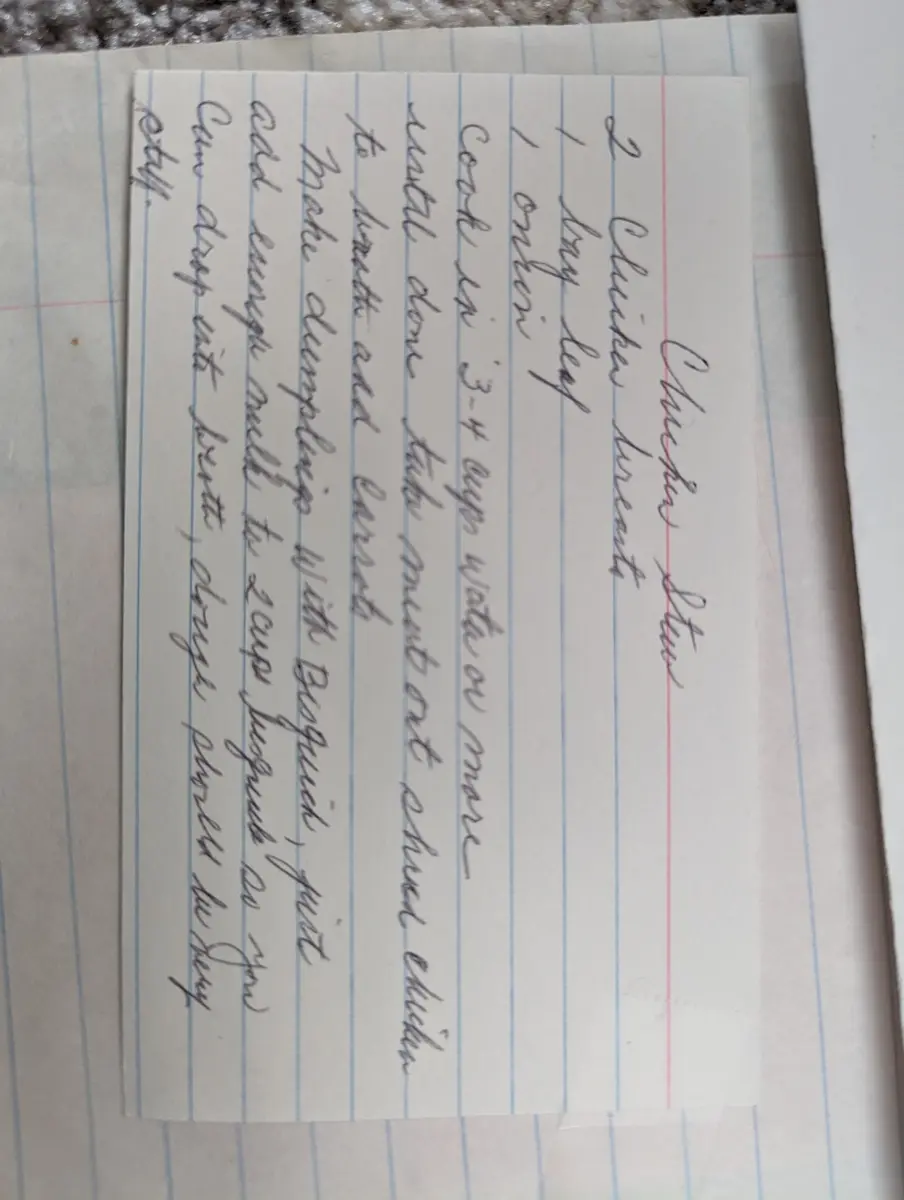 Chicken Stew
2 Chicken breasts
1 bay leaf
1 onion
Cook in 3-4 cups water or more
until done take meat out shred chicken
to broth add carrots
Make dumplings with Bisquick, just
add enough milk to 2 cups so you
Can drop into broth, dough should be very
stiff.